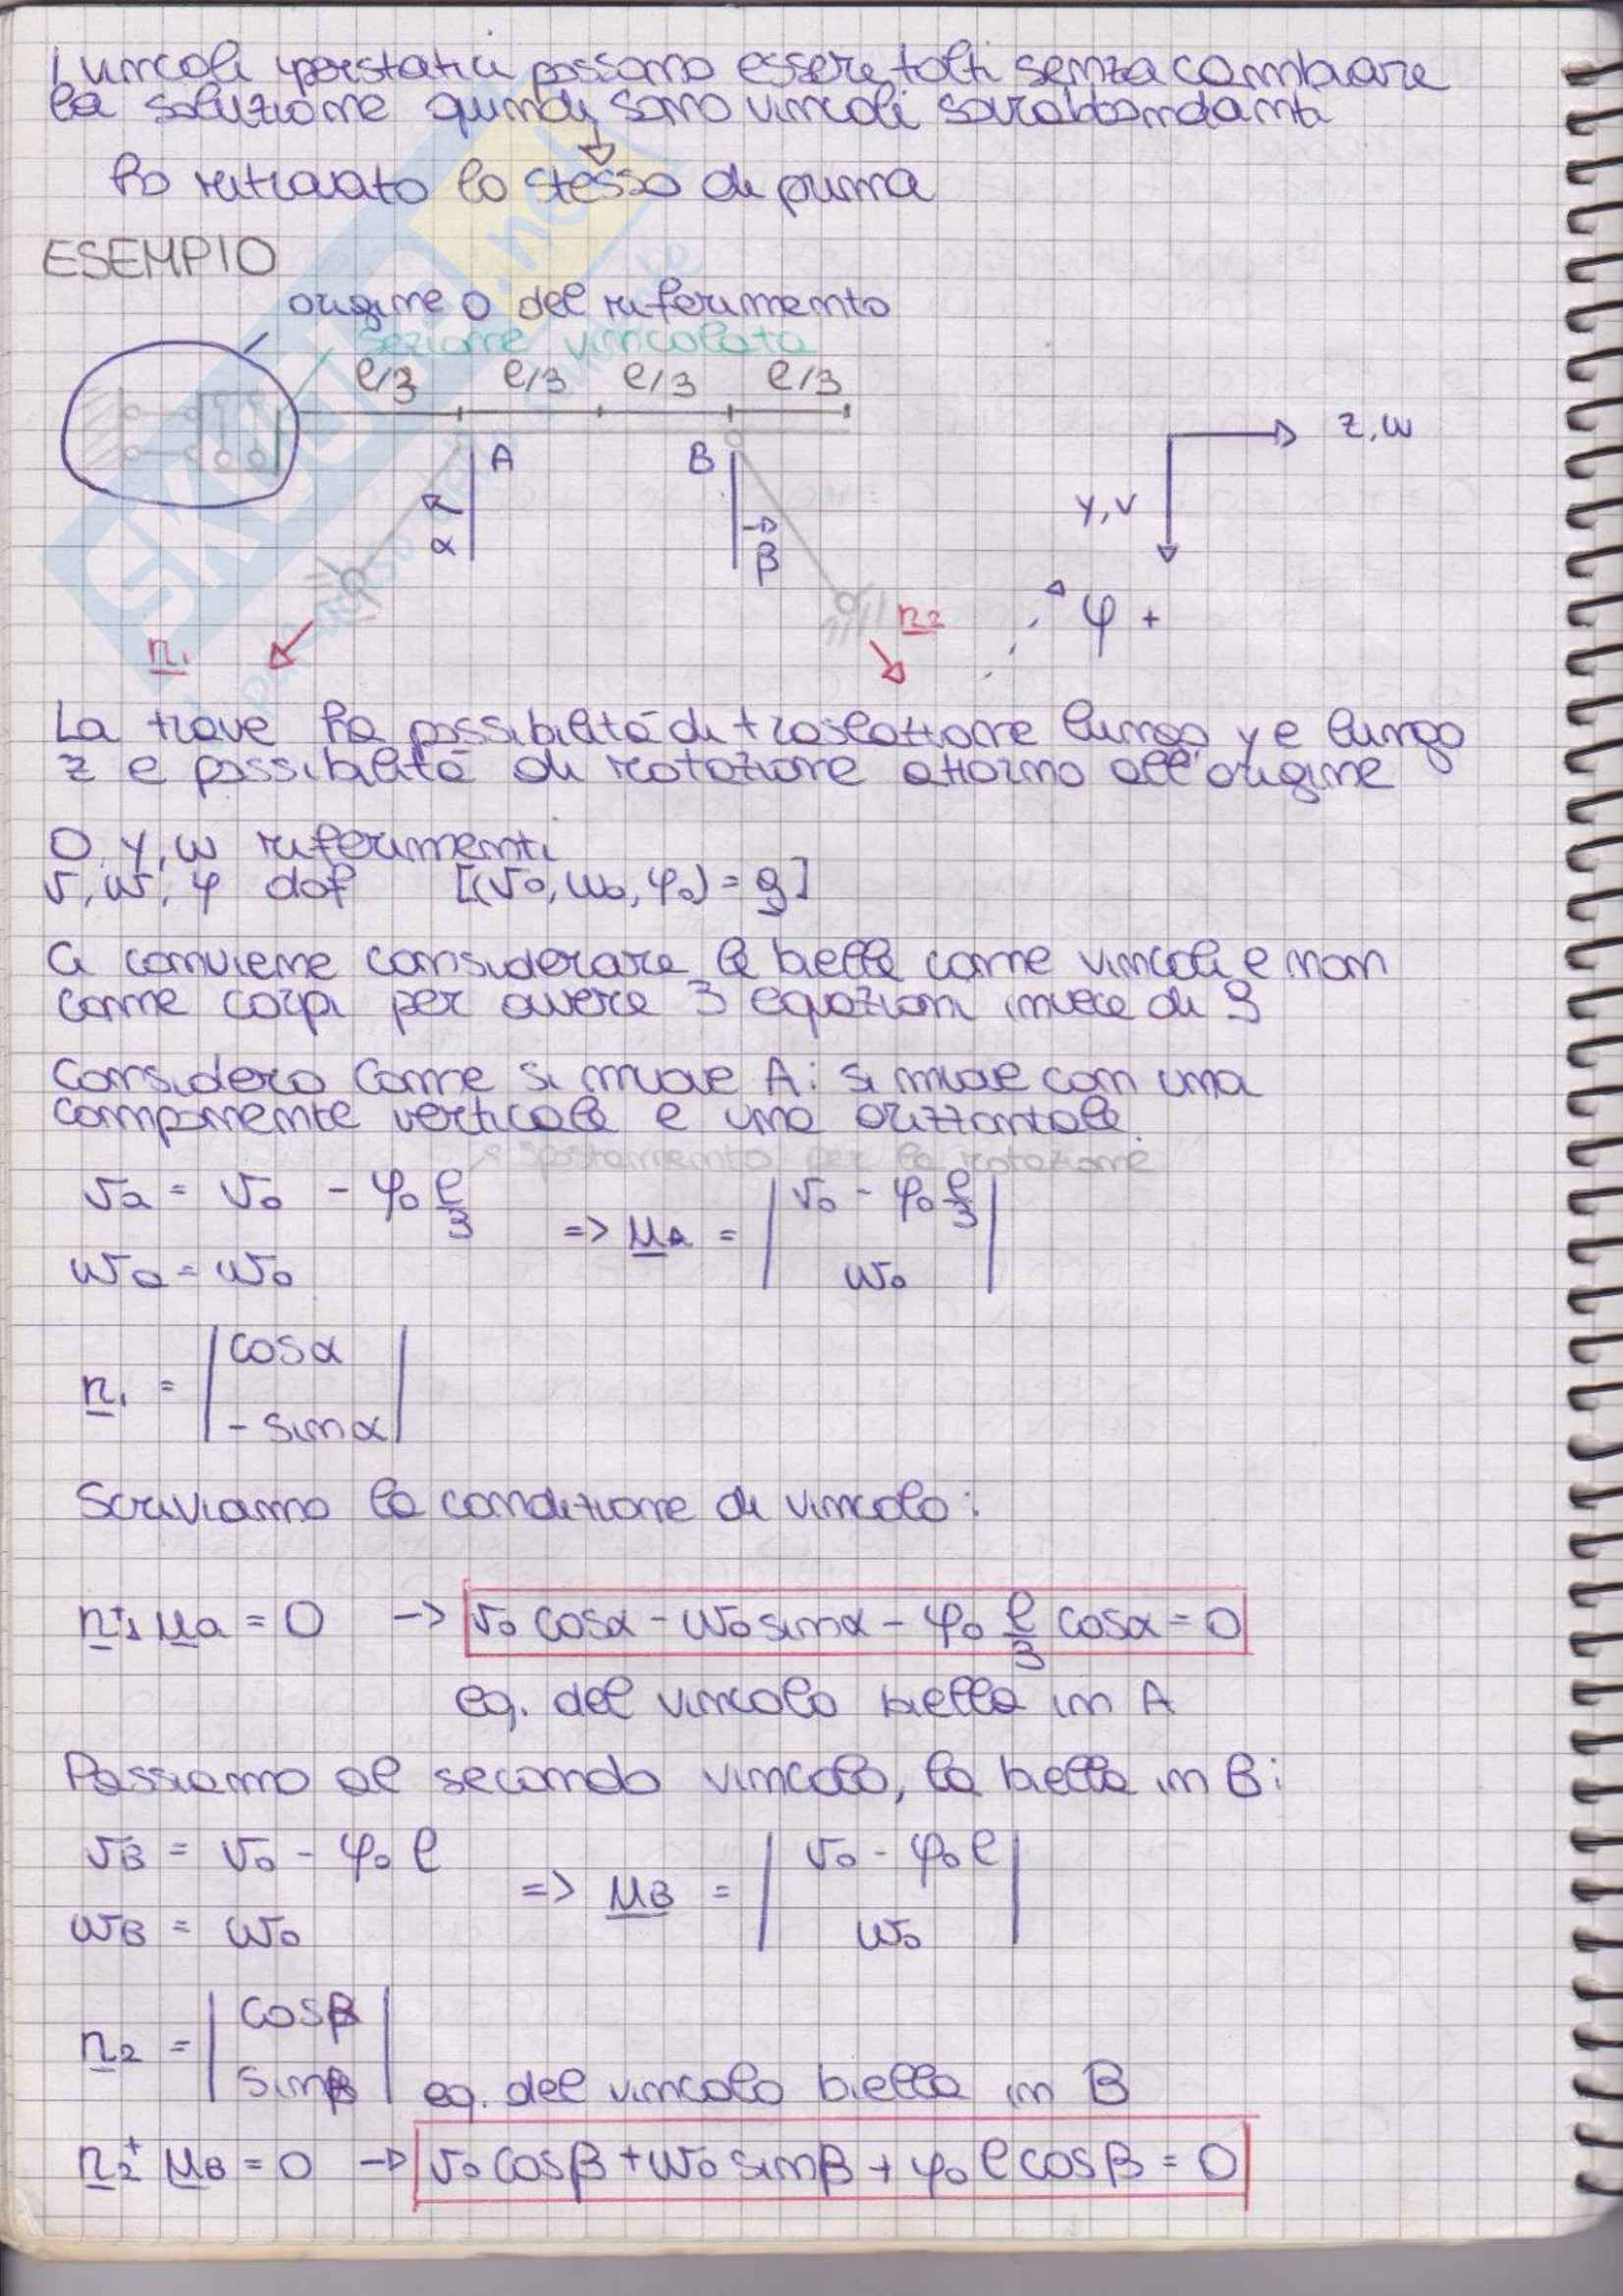 I vincoli iperstatici possono essere tolti senza cambiare
la soluzione quindi sono vincoli sovrabbondanti
ho ritrovato lo stesso di prima
ESEMPIO
origine O del riferimento
sezione vincolata
l/3 l/3 l/3 l/3
A B
α β
z, w
y, v
φ +
n₁ n₂
La trave ha possibilità di traslazione lungo y e lungo
z e possibilità di rotazione attorno all'origine
O, y, w riferimenti
v, w, φ dof [(v₀, w₀, φ₀) = q]
Ci conviene considerare le bielle come vincoli e non
come corpi per avere 3 equazioni invece di 9
Considero come si muove A: si muove con una
componente verticale e una orizzontale.
spostamento per la rotazione
va = v₀ - φ₀ l/3 => uA = | v₀ - φ₀ l/3 |
wa = w₀ | w₀ |
n₁ = | cosα |
| -sinα |
Scriviamo la condizione di vincolo:
n₁ᵗ ua = 0 -> v₀ cosα - w₀ sinα - φ₀ l/3 cosα = 0
eq. del vincolo biella in A
Passiamo al secondo vincolo, la biella in B:
vB = v₀ - φ₀ l => uB = | v₀ - φ₀ l |
wB = w₀ | w₀ |
n₂ = | cosβ |
| sinβ | eq. del vincolo biella in B
n₂ᵗ uB = 0 -> v₀ cosβ + w₀ sinβ + φ₀ l cosβ = 0